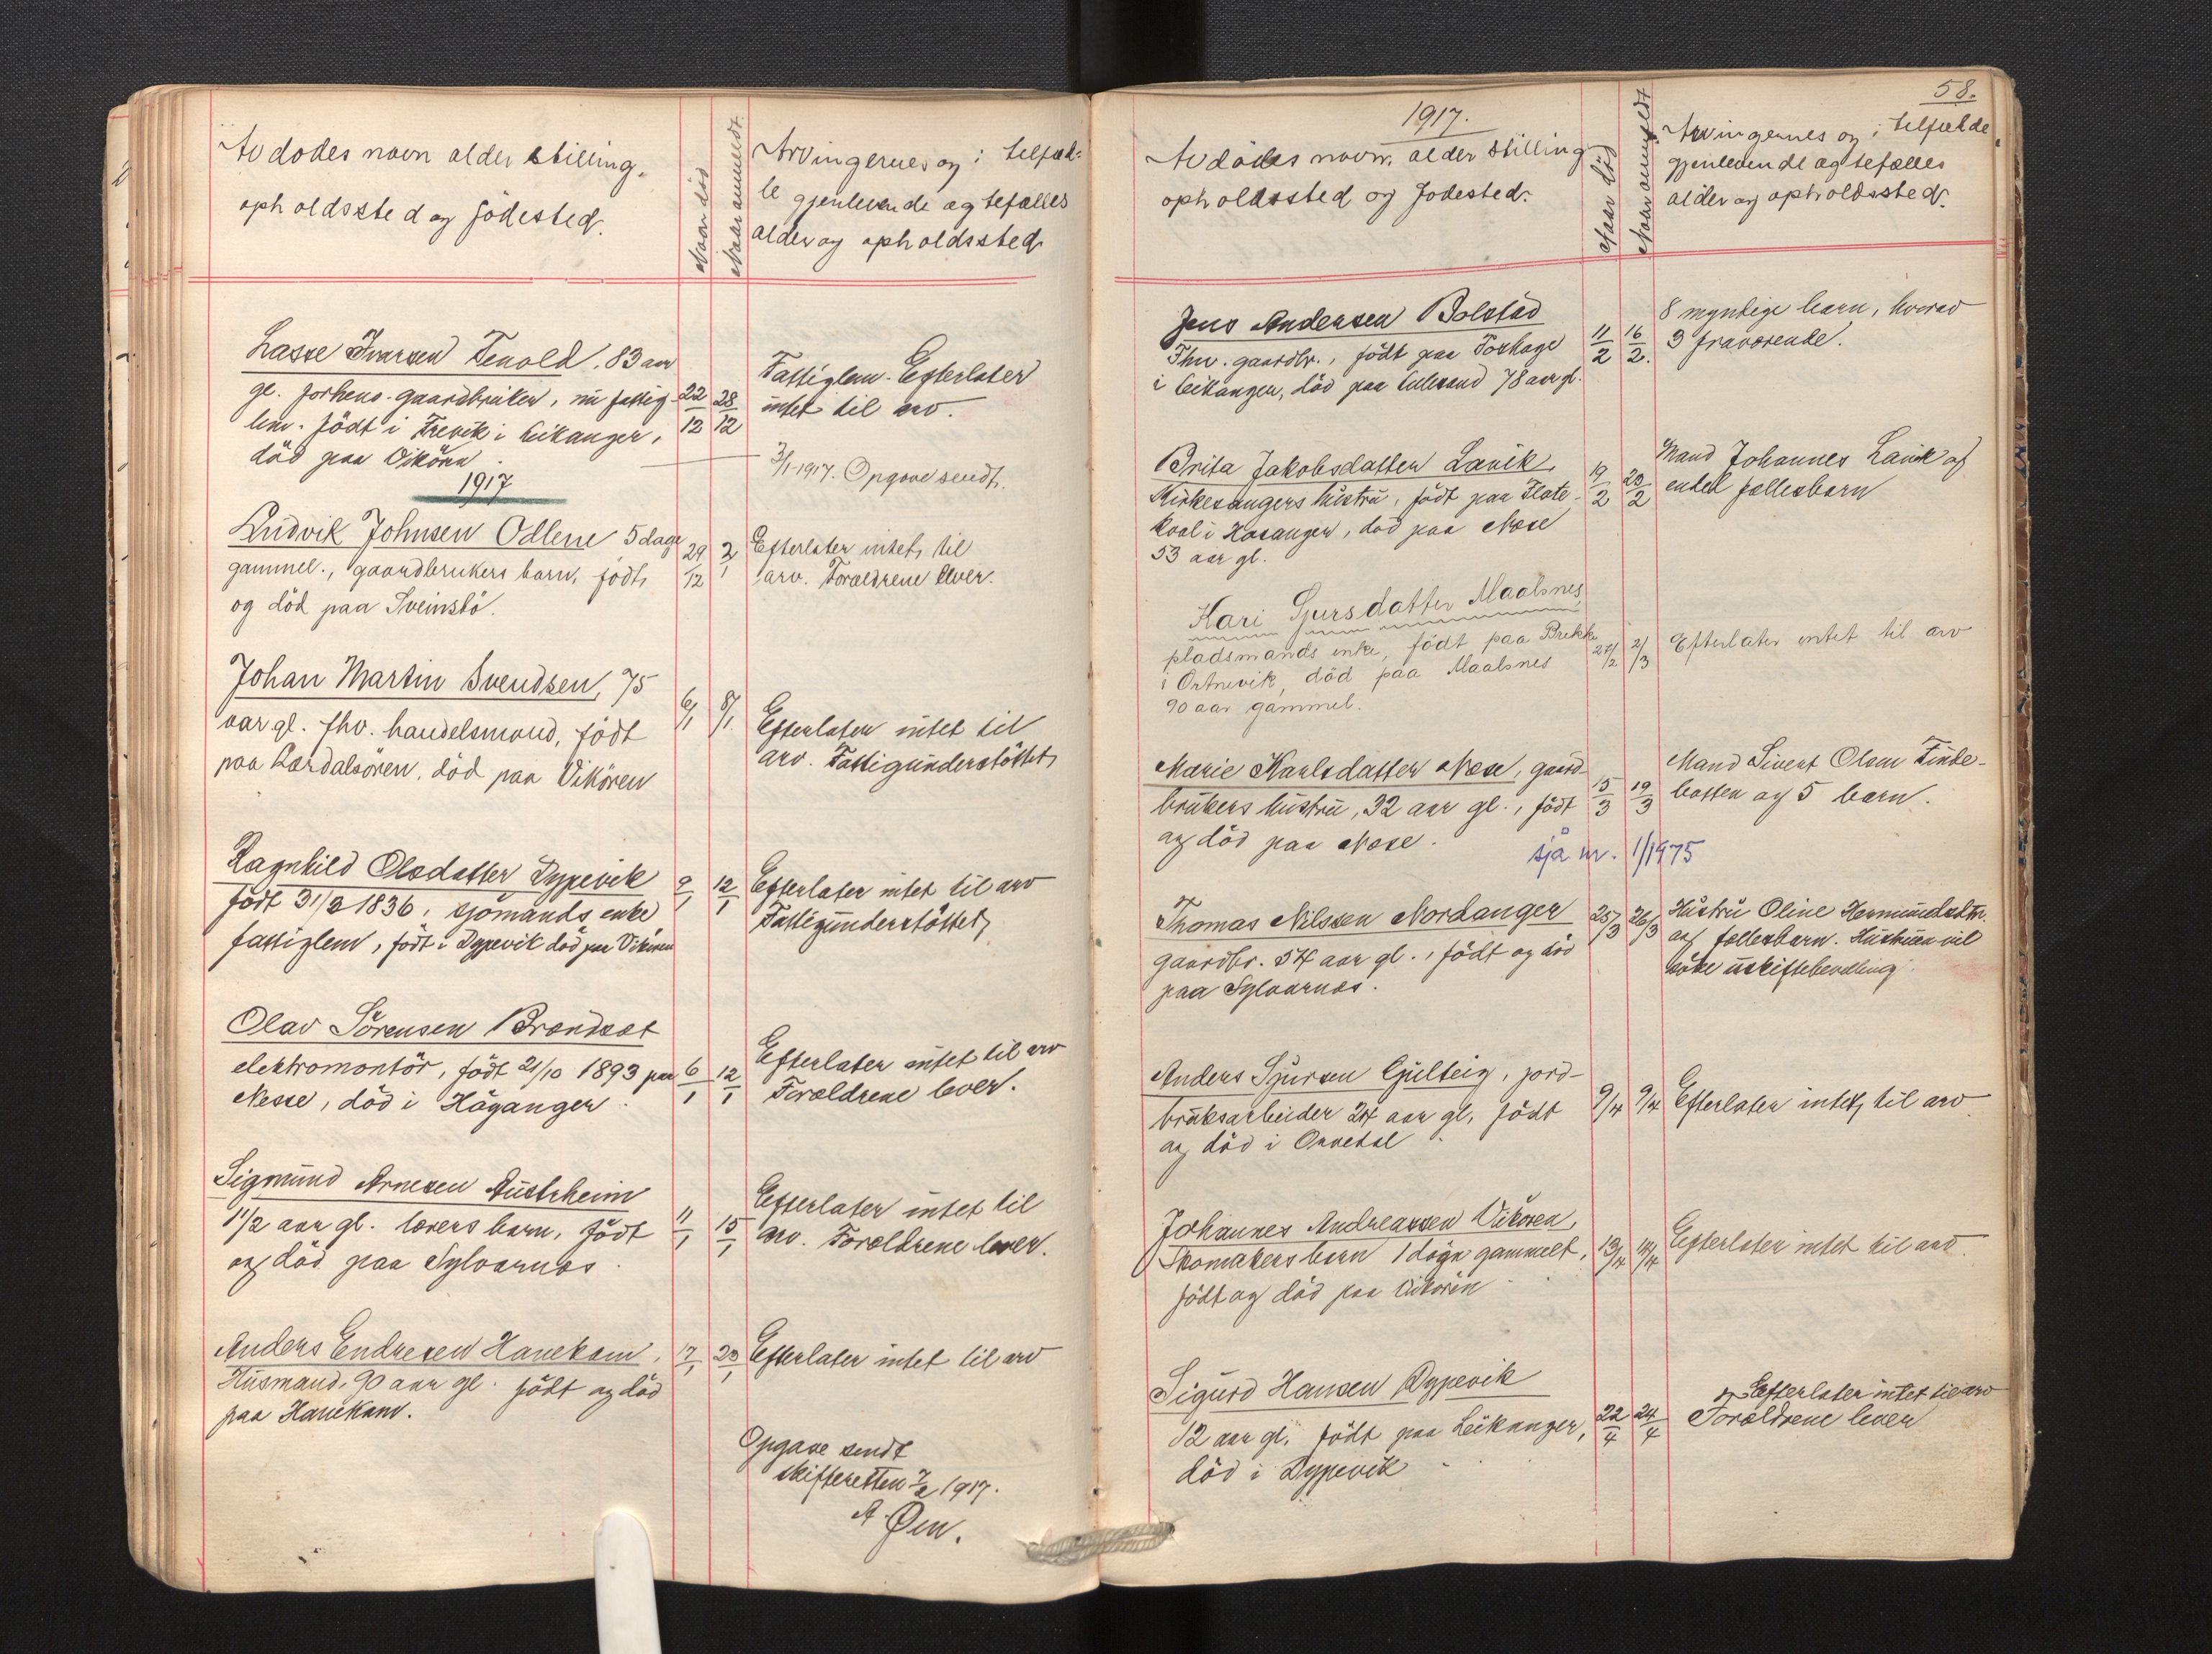 Avdødes navn alder stilling.
opholdssted og fødested.
Naar død
Naar anmeldt.
Arvingernes og i tilfæl-
le gjenlevende ægtefælles
alder og opholdssted
Lasse Ivarsen Tenold. 83 aar
gl. forhens. gaardbruker, nu fattig-
lem. født i Frevik i Leikanger,
død paa Vikøren
22/12
28/12
Fattiglem. Efterlater
intet til arv.
3/1-1917. Opgave sendt.
1917
Ludvik Johnsen Odlene 5 dage
gammel., gaardbrukers barn, født
og død paa Sveinsbø.
29/12
2/1
Efterlater intet til
arv. Forældrene lever.
Johan Martin Svendsen, 75
aar gl. fhv. handelsmand, født
paa Lærdalsøren, død paa Vikøren
6/1
8/1
Efterlater intet til
arv. Fattigunderstøttet
Ragnhild Olsdatter Dypevik
født 31/3 1836, sjømands enke
fattiglem, født i Dypevik død paa Vikøren
9/1
12/1
Efterlater intet til arv
Fattigunderstøttet
Olav Sørensen Brandsæt
elektromontør, født 21/10 1893 paa
Nesse, død i Høyanger.
6/1
12/1
Efterlater intet til arv
Forældrene lever.
Sigmund Arnesen Austrheim
1 1/2 aar gl. lærers barn, født
og død paa Sylvarnæs.
11/1
15/1
Efterlater intet til
arv. Forældrene lever.
Anders Endresen Hanekam,
Husmand, 90 aar gl. født og død
paa Hanekam.
17/1
23/1
Efterlater intet til arv
Opgave sendt
skifteretten 7/2 1917.
A. Øen.
58.
1917.
Avdødes navn. alder stilling
opholdssted og fødested.
Naar død
Naar anmeldt
Arvingernes og i tilfælde
gjenlevende ægtefælles
alder og opholdssted.
Jens Andersen Bolstad
Fhv. gaardbr., født paa
i Leikanger, død paa 78 aar gl.
11/2
16/2.
8 myndige barn, hvorav
3 fraværende.
Brita Jakobsdatter Lavik,
Kirkesangers hustru, født paa Flote-
kval i Hosanger, død paa Næse
53 aar gl.
19/2
23/2
Mand Johannes Lavik og
endel fællesbarn
Kari Sjursdatter Maalsnes,
pladsmands enke, født paa Brekke
i Ortnevik, død paa Maalsnes
90 aar gammel.
27/2
2/3
Efterlater intet til arv
Marie Karlsdatter Næse, gaard-
brukers hustru, 32 aar gl., født
og død paa Næse.
15/3
19/3
Mand Sivert Olsen Finde-
botten og 5 barn.
sjå nr. 1/1975
Thomas Nilssen Nordanger
gaardbr. 54 aar gl., født og død
paa Sylvarnæs.
25/3
26/3
Hustru Oline Hermundsdtr.
og fællesbarn. Hustruen vil
søke uskiftebevilling.
Anders Sjursen Gulteig, jord-
bruksarbeider 24 aar gl, født
og død i Arnetal
9/4
9/4
Efterlater intet til arv
Johannes Andreassen Vikøren,
Skomakers barn 1 døgn gammelt,
født og død paa Vikøren
13/4
14/4
Efterlater intet til arv.
Sigurd Hansen Dypevik
12 aar gl, født paa Leikanger,
død i Dypevik
22/4
24/4
Efterlater intet til arv
Forældrene lever